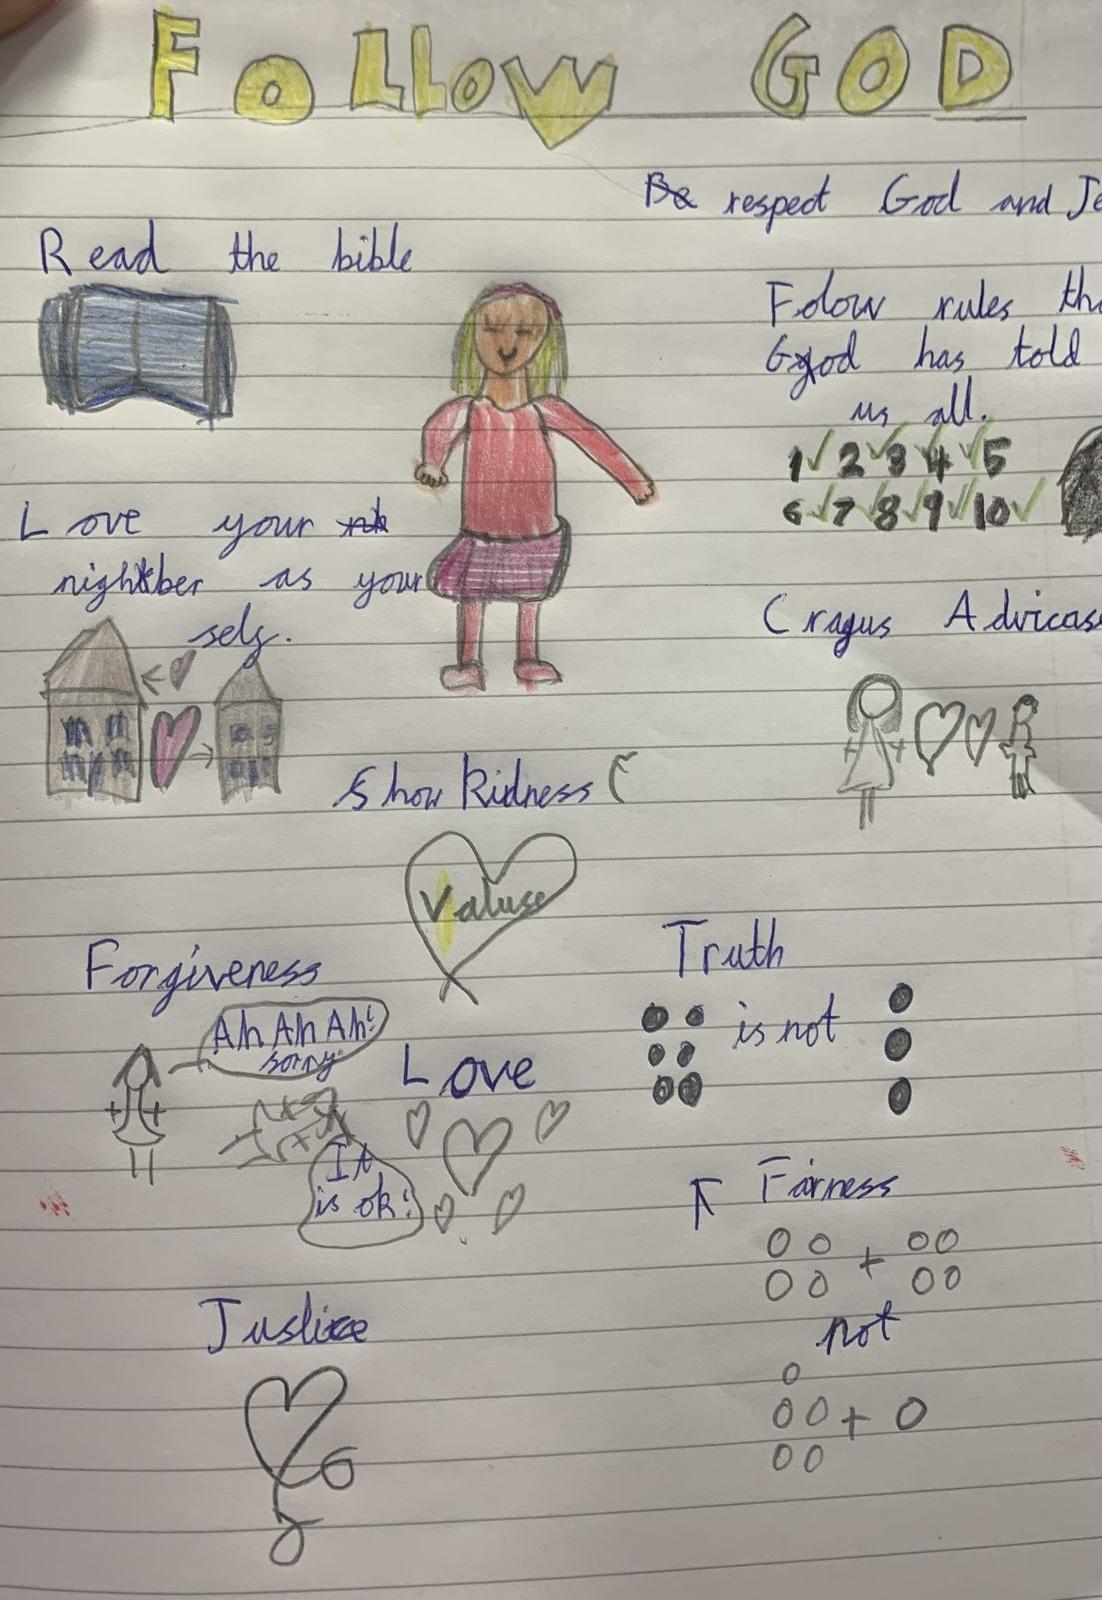 FOLLOW GOD
respect God and Je
Read the bible
Folow rules tha
God has told
us all.
1 2 3 4 5
6 7 8 9 10
Love your
nighber as your
self.
Cragus Advicas
Show Kidness
Valuse
Forgiveness
Ah Ah Ah!
sorry
It
is ok!
Love
Truth
is not
Fairness
+
not
+
Justice